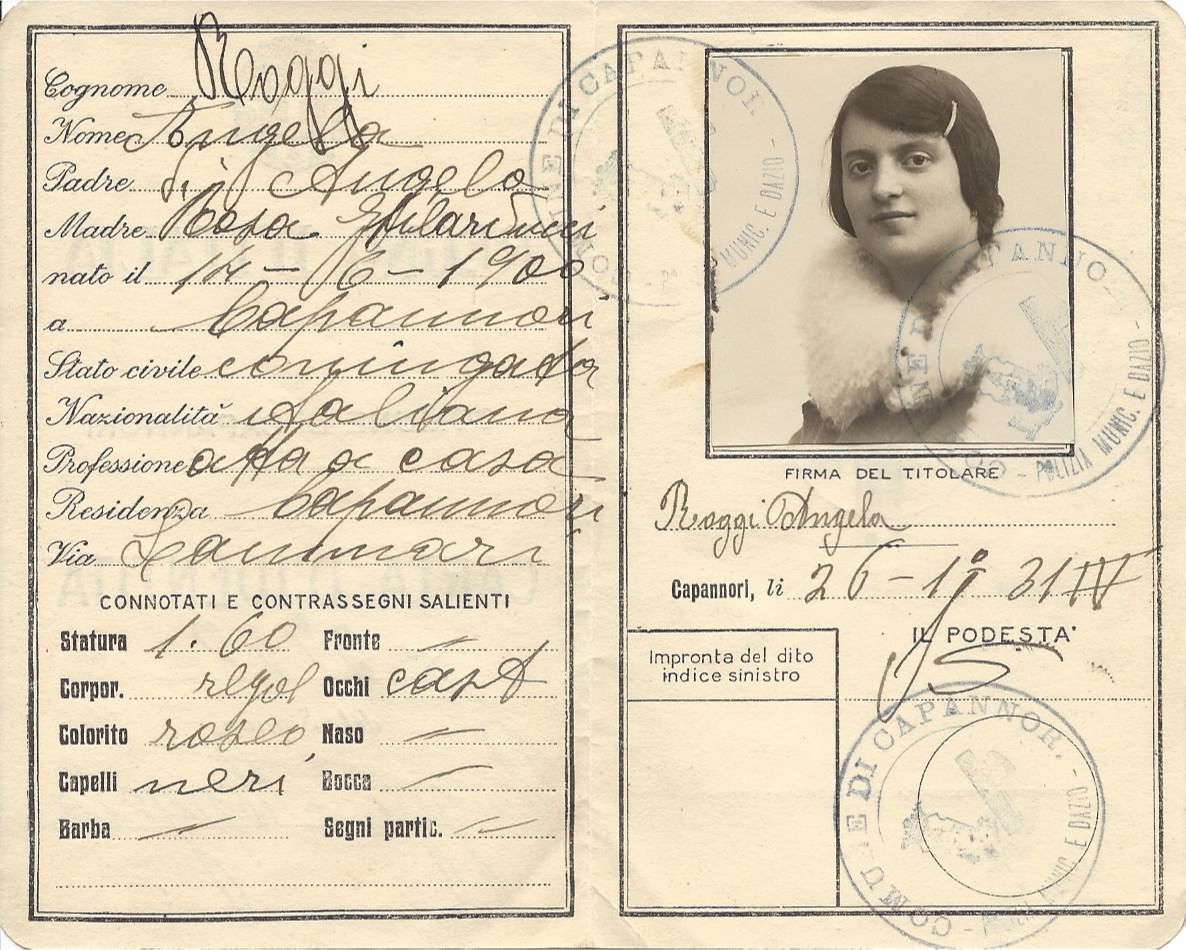 Cognome Roggi
Nome Angela
Padre di Angelo
Madre Rosa
nato il 17-6-1900
a Capannori
Stato civile coniugata
Nazionalità italiana
Professione atta a casa
Residenza Capannori
Via Lammari
CONNOTATI E CONTRASSEGNI SALIENTI
Statura 1.60 Fronte
Corpor. regol Occhi cast
Colorito roseo Naso
Capelli neri Bocca
Barba Segni partic.
COMUNE DI CAPANNOR.
MUNIC. E DAZIO -
CAPANNO
- POLIZIA MUNIC. E DAZIO -
FIRMA DEL TITOLARE
Roggi Angela
Capannori, li 26-1º 31 IX
IL PODESTA'
Impronta del dito
indice sinistro
COMUNE DI CAPANNOR. -
MUNIC. E DAZIO